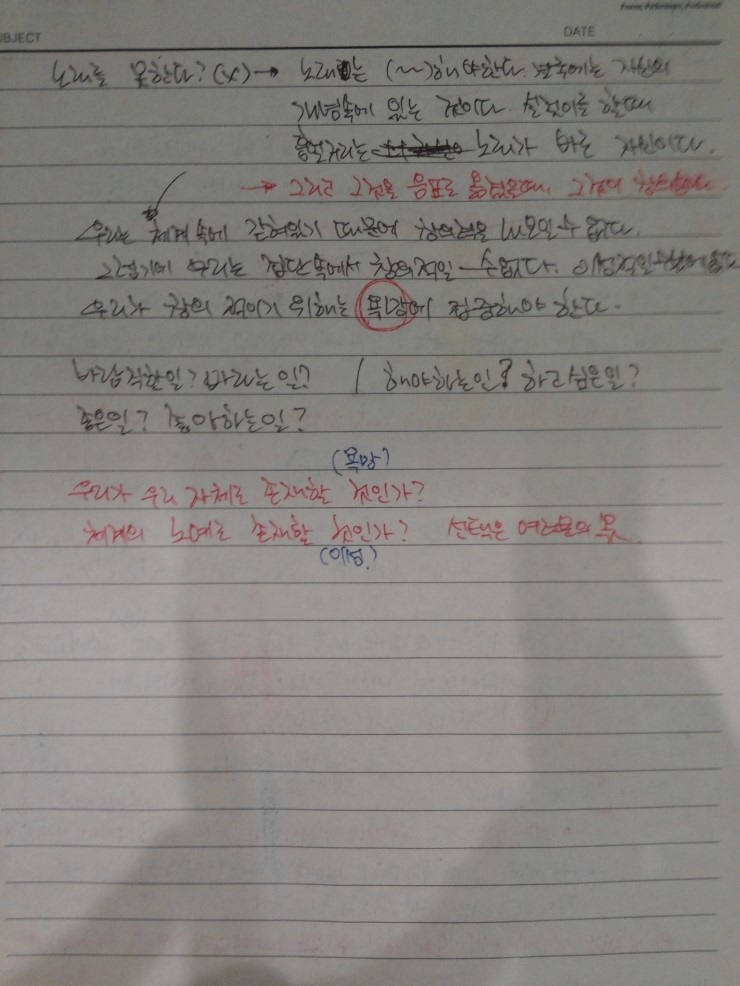 UBJECT DATE
노래를 못한다? (x) → 노래는 (~)해야한다. 자신의
개념속에 있는 것이다. 설겆이를 할때
흥얼거리는 노래가 바로 자신이다.
→ 그리고 그것을 음표로 옮겼을때, 그것이 창의성이다.
우리는 체계 속에 갇혀있기 때문에 창의력을 보일수 없다.
그렇기에 우리는 집단속에서 창의적일 수없다. 이성적일
우리가 창의적이기 위해는 욕망에 집중해야 한다.
바람직한일? 바라는일? / 해야하는일? 하고싶은일?
좋은일? 좋아하는일?
(욕망)
우리가 우리 자체로 존재할 것인가?
체계의 노예로 존재할 것인가? 선택은 여러분의 몫
(이성)